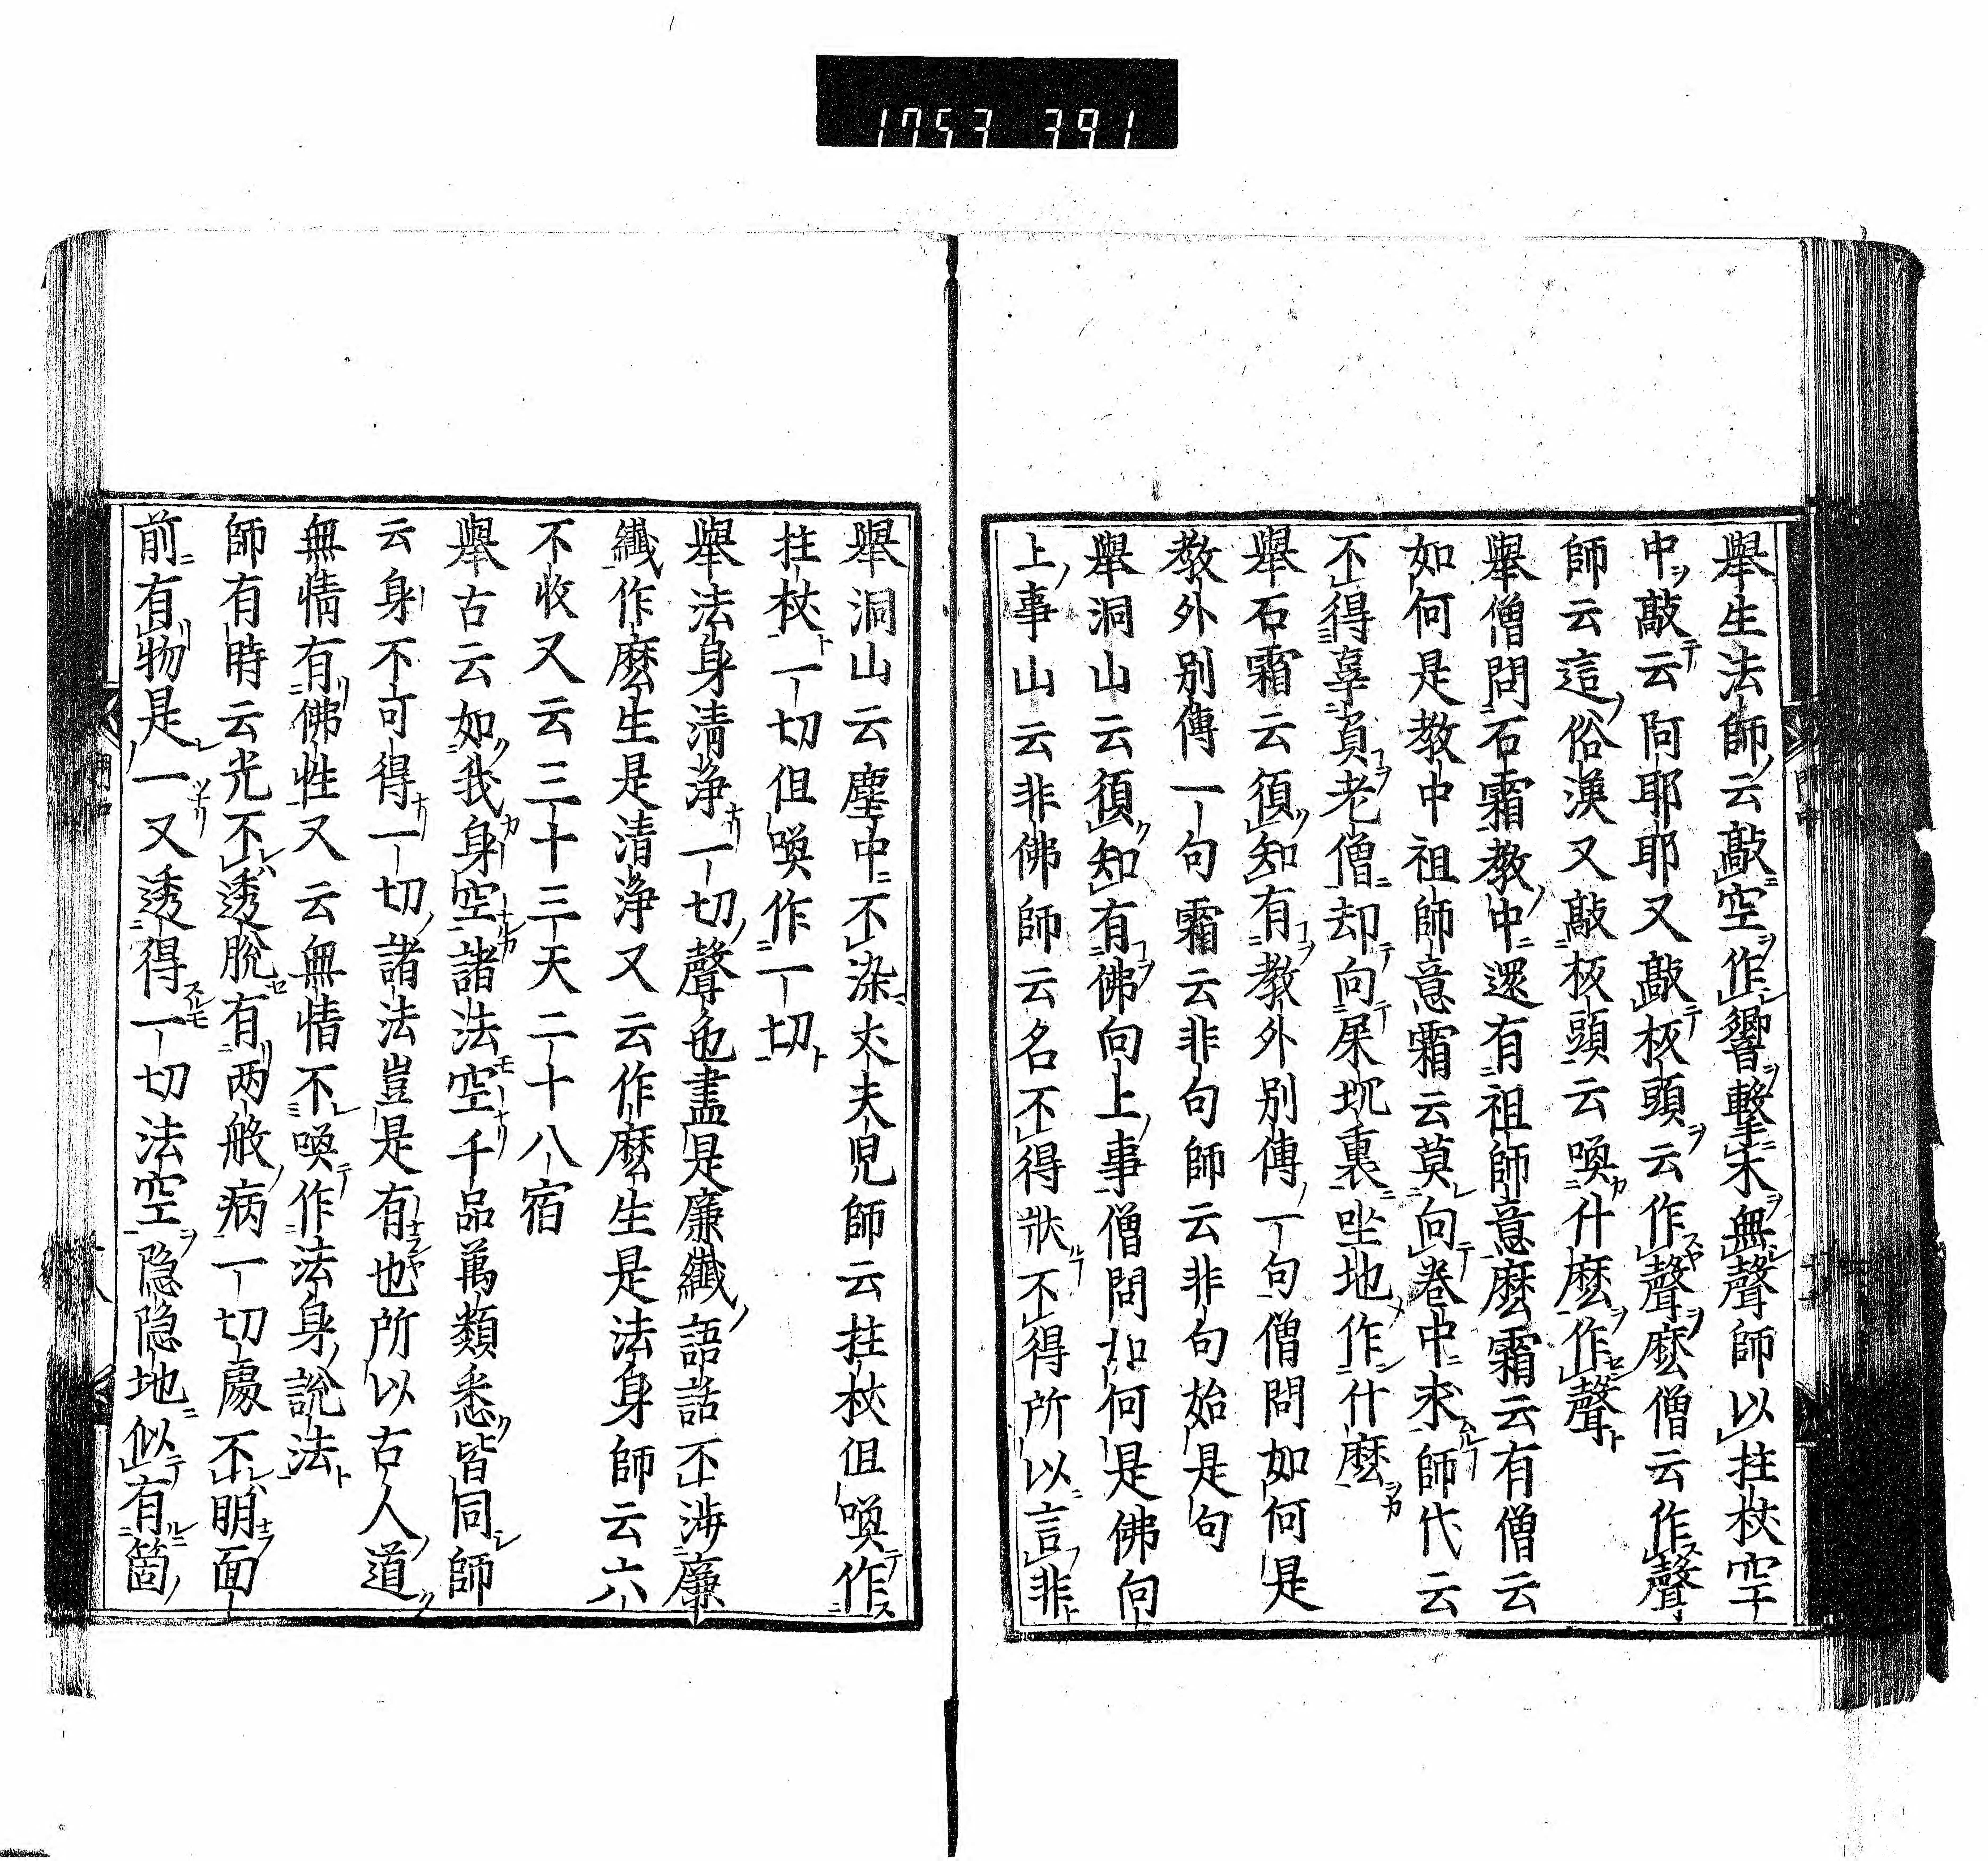 1753 391
舉生法師云敲空作響擊木無聲師以拄杖空
中敲云阿耶耶又敲板頭云作聲麼僧云作聲
師云這俗漢又敲板頭云喚什麼作聲
舉僧問石霜教中還有祖師意麼霜云有僧云
如何是教中祖師意霜云莫向卷中求師代云
不得辜負老僧却向屎坑裏坐地作什麼
舉石霜云須知有教外別傳一句僧問如何是
教外別傳一句霜云非句師云非句始是句
舉洞山云須知有佛向上事僧問如何是佛向
上事山云非佛師云名不得狀不得所以言非
舉洞山云塵中不染丈夫兒師云拄杖但喚作
拄杖一切但喚作一切
舉法身清淨一切聲色盡是廉纖語話不涉廉
纖作麼生是清淨又云作麼生是法身師云六
不收又云三十三天二十八宿
舉古云如我身空諸法空千品萬類悉皆同師
云身不可得一切諸法豈是有也所以古人道
無情有佛性又云無情不喚作法身說法
師有時云光不透脫有兩般病一切處不明面
前有物是一又透得一切法空隐隐地似有箇